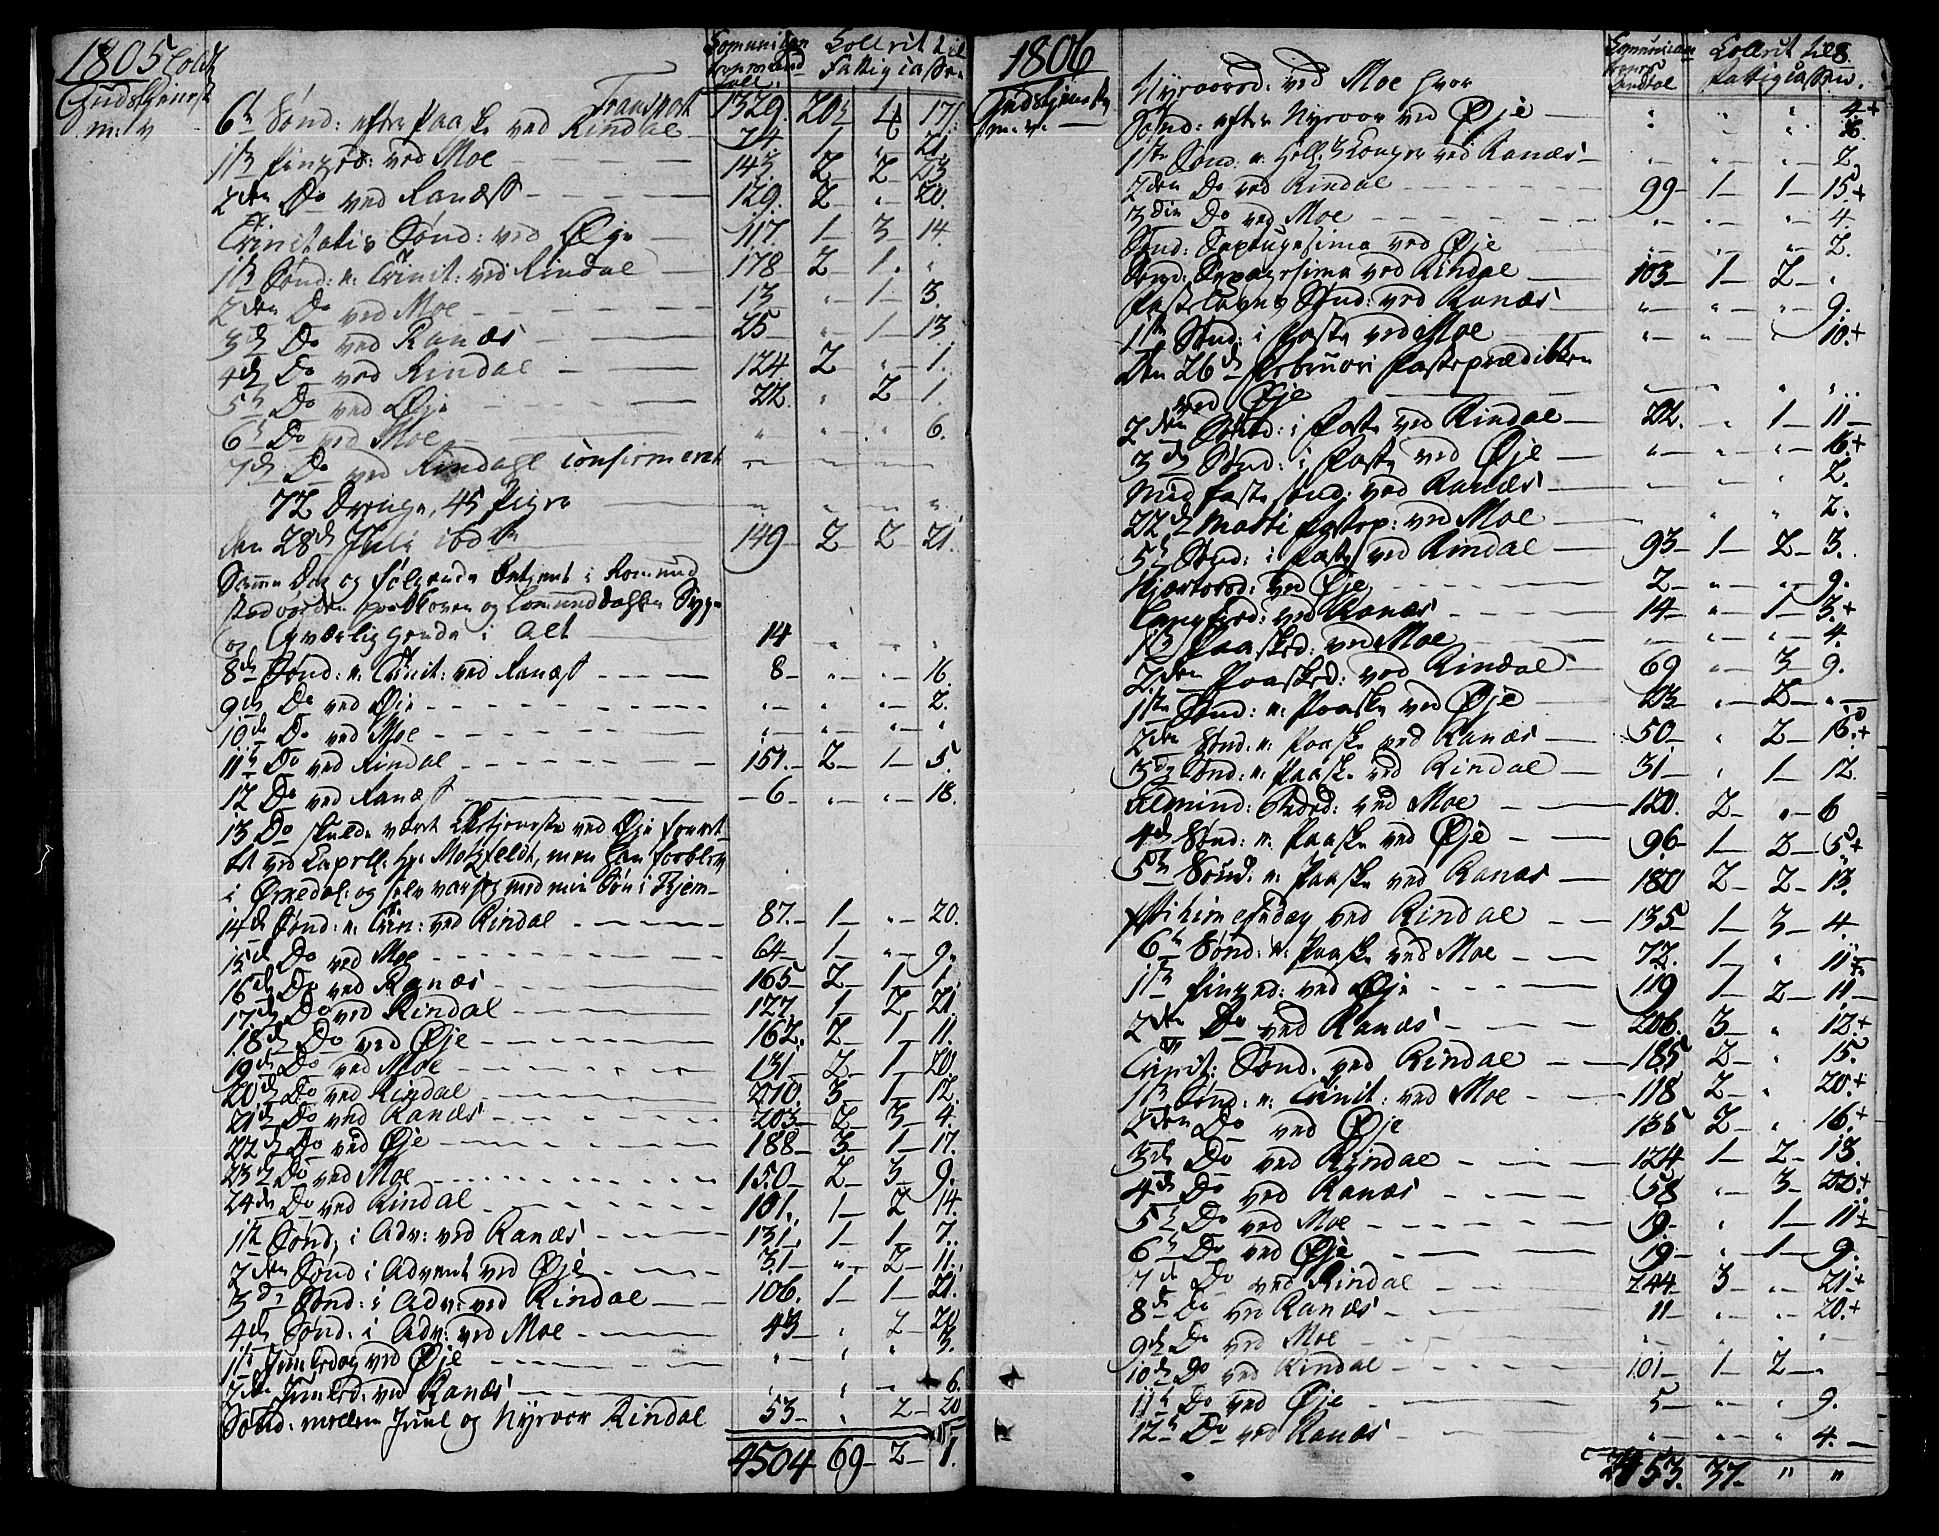 1805 holdt
Gudstjeneste
m: v
Comunican Collect til
Fattigcassen
Transport 1329. 20 4 17
6te Sønd: efter Paaske ved Rindal 74 1 " 21.
1ste Pingsd: ved Moe 143. 2 2 13
2den Do ved Ranæss 129. 2 " 20.
Trinitatis Sønd: ved Øye 117. 1 3 14.
1ste Sønd: e: Trinit: ved Rindal 178 2 1. "
2den Do ved Moe 13 " 1 3.
3die Do ved Ranæs 25 " 1 13
4de Do ved Rindal 124 2 " 1.
5te Do ved Øje 22. " 2 1.
6te Do ved Moe " " " 6.
7de Do ved Rindahl confirmeret
72 Drenge, 45 Piger
den 28de Juli ibdm 149 2 2 21.
Samme Dag og følgende betjent i Romund
og Gværliggende i Alt 14 " " "
8de Sønd: e: Trinit: ved Ranæss 8 " " 16.
9de Do ved Øje " " " 2.
10de Do ved Moe " " " "
11te Do ved Rindal 151. 2 1 5.
12 Do ved Ranæss 6 " " 18.
13 Do skulde været Gudstjeneste ved Øje forret-
tet ved Capell: Hr: Motzfeldt, men han forblev
i Ørkedal: og selv var jeg med min Søn i Thjem
14de Sønd: e: Trin: ved Rindal 87. 1 " 20.
15de Do ved Moe 64 1 " 9.
16de Do ved Ranæs 165 2 1 1.
17de Do ved Rindal 127. 1 2 21.
18de Do ved Øje 162. 2 1 11.
19de Do ved Moe 131. 2 1 20.
20de Do ved Rindal 270. 3 1 12.
21de Do ved Ranæs 203 2 3 4.
22de Do ved Øje 188 3 1 17.
23de Do ved Moe 150 2 3 9.
24de Do ved Rindal 101. 1 2 14.
1ste Sønd: i Adv: ved Ranæs 131. 1 1 7.
2den Sønd i Advent ved Øje 31 " 2 11.
3die Sønd: i Adv: ved Rindal 106. 1 1 21.
4de Sønd: i Adv: ved Moe 43 " 2 20
1ste Juuledag ved Øje " " " 3.
2den Juuled: ved Ranæs " " " 6.
Sønd: mellem Juul og Nyeaar Rindal 53 " 2 20
4504 69 2 1.
1806
Gudstjeneste
m. v.
Collect til
Fattigcassen.
8.
Nyeaarsd: ved Moe " " " 4+
Sønd: efter Nyeaar ved Øje
1ste Sønd: e: Hell: 3 Konger ved Ranæs " " " 2.
2den Do ved Rindal 99 1 1 15+
3die Do ved Moe " " " 4.
Sønd: Septuagesima ved Øje " " " 2.
Sønd: Sexagesima ved Rindal 103 1 2 "
Fastelavns Sønd: ved Ranæs " " " 9.
1ste Sønd: i Faste ved Moe " " " 10.+
Den 26de Februari Fasteprædikken
ved Øje " " " "
2den Sønd: i Faste ved Rindal 22. " 1 11
3die Sønd: i Faste ved Øje " " " 16+
Mid faste sønd: ved Ranæs " " " 2.
22de Marti Fastep: ved Moe " " " 2.
5te Sønd: i Faste ved Rindal 93 1 2 3.
Skjærtorsd: ved Øje 2 " " 9.
Langfred: ved Ranæs 14 " 1 3.+
1ste Paasked: ved Moe " " " 4.
2den Paasked: ved Rindal 69 " 3 9.
1ste Sønd: e: Paaske ved Øje 23 " 2 "
2den Sønd: e: Paaske ved Ranæs 50 " 2 16.+
3die Sønd: e: Paaske ved Rindal 31 " 1 12
Almind: Bededd: ved Moe 120. 2 " 6
4de Sønd: e: Paaske ved Øje 96 1 2 5+
5te Sønd: e: Paaske ved Ranæs 180 2 2 13.
Christi himelf: dag ved Rindal 135 1 3 4.
6te Sønd: e: Paaske ved Moe 72. 1 " 11+
1ste Pinsed: ved Øje 119 1 2 11
2den Do ved Ranæs 206. 3 " 12.+
Trinit: Sønd: ved Rindal 185 2 " 15.
1ste Sønd: e: Trinit: ved Moe 118 2 " 20.+
2den Do ved Øje 135 2 " 16.+
3die Do ved Rindal 124 1 2 13.
4de Do ved Ranæs 58 " 3 20.+
5te Do ved Moe 19. " 1 11+
6te Do ved Øje 19 " 1 9.
7de Do ved Rindal 244 3 " 21.+
8de Do ved Ranæs 11 " " 20.+
9de Do ved Moe " " " "
10de Do ved Rindal 101 1 2 "
11te Do ved Øje 5 " " 9.
12te Do ved Ranæs " " " 4.
2453. 37. " "